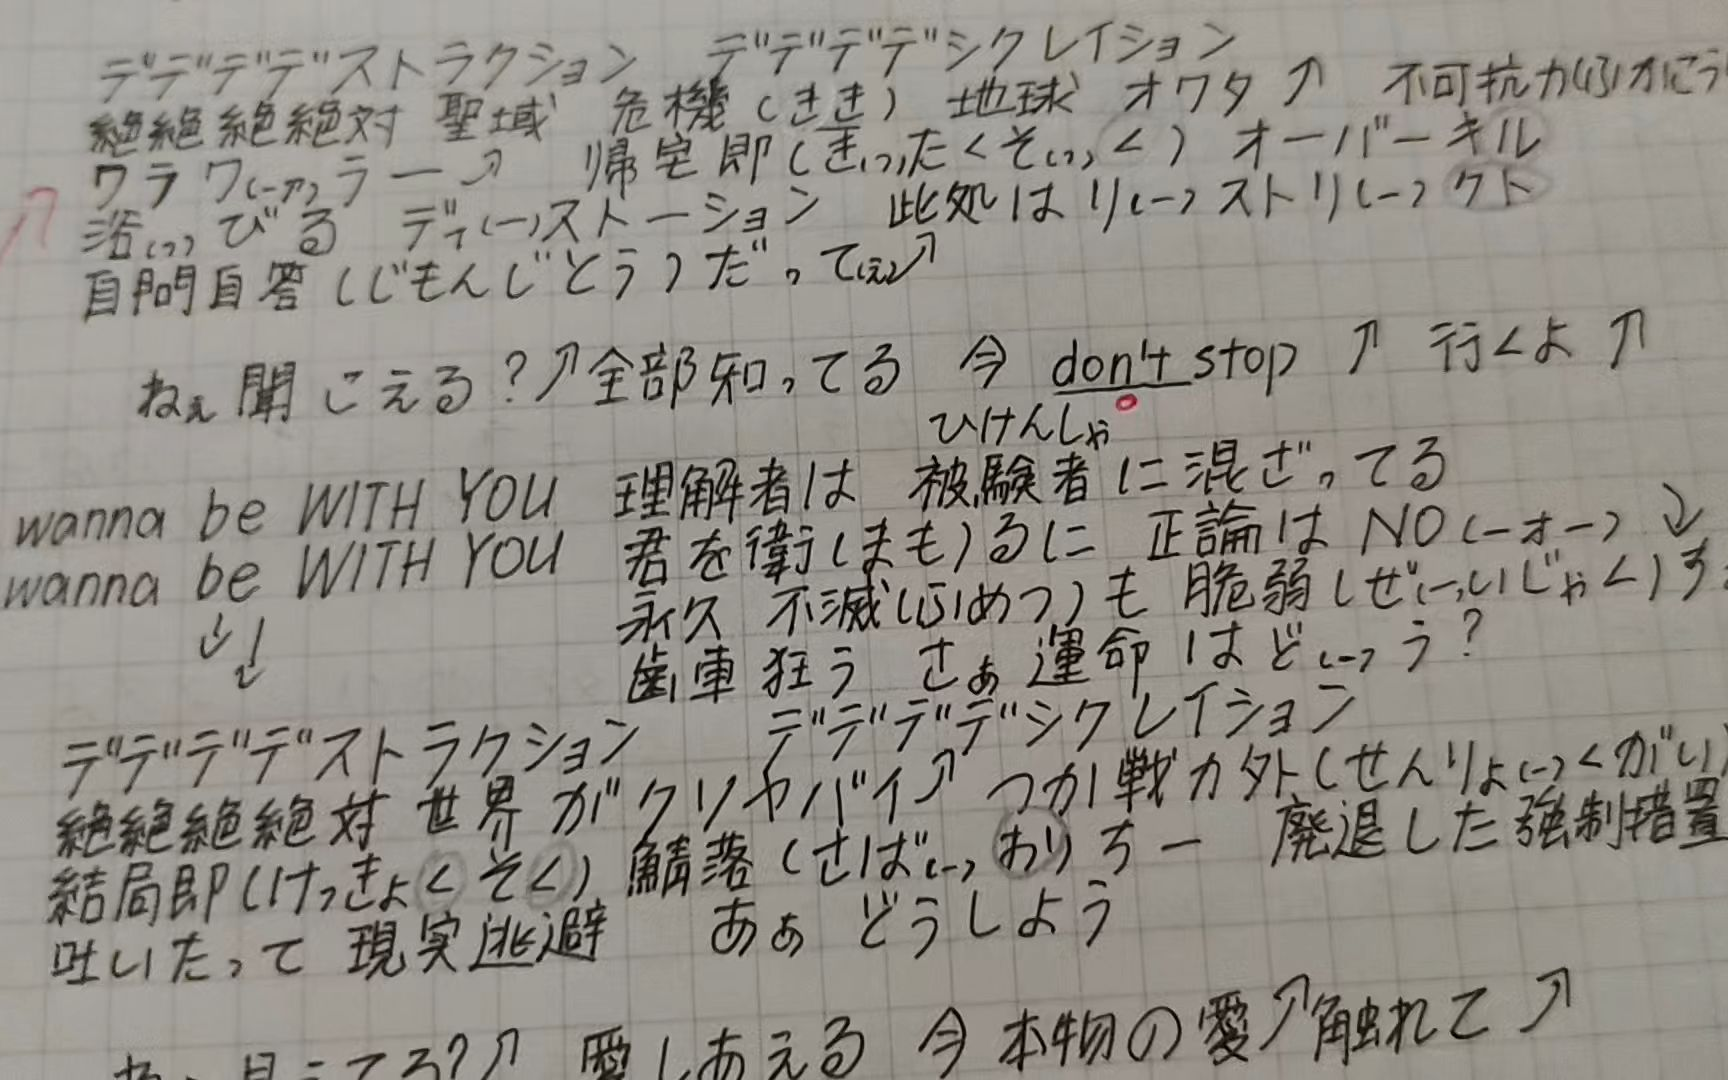 デデデデストラクション　デデデデシクレイション
絶絶絶絶対 聖域 危機(きき) 地球 オワタ↗ 不可抗力(ふかこう
ワラワ(ーア)ラー↗ 帰宅即(きぃったくそぃっく) オーバーキル
浴(っ)びる ディ(ー)ストーション 此処はリ(ー)ストリ(ー)クト
自問自答(じもんじとう)だって(ぇ)↗
ねぇ聞こえる?↗全部知ってる 今 don't stop ↗ 行くよ↗
ひけんしゃ
wanna be WITH YOU 理解者は 被験者に混ざってる
wanna be WITH YOU 君を衛(まも)るに 正論は NO(ーオー)↘
永久 不滅(ふめつ)も 脆弱(ぜ(ー)いじゃく)
↓↓
歯車狂う さぁ運命はど(ー)う?
デデデデストラクション　デデデデシクレイション
絶絶絶絶対 世界がクソヤバイ↗ つか戦力外(せんりょ(ー)くがい)
結局即(けっきょくそく) 鯖落(さば(ー)おりちー 廃退した強制措置
吐いたって 現実逃避 あぁ どうしよう
見えてる?↗ 愛しあえる 今本物の愛↗触れて↗